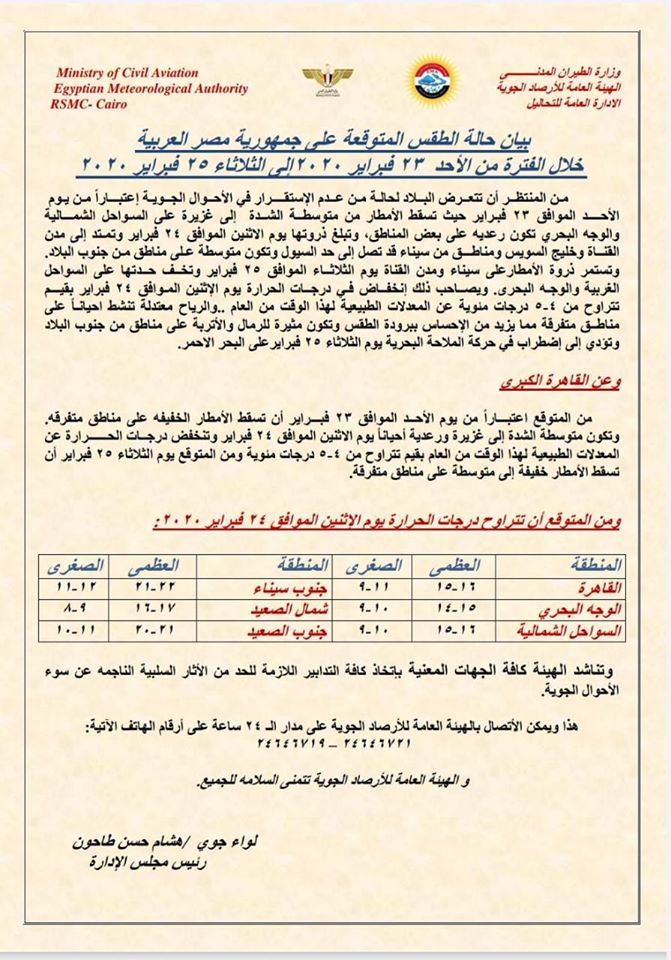 Ministry of Civil Aviation
Egyptian Meteorological Authority
RSMC- Cairo
وزارة الطيران المدنـــــي
الهيئة العامة للأرصاد الجوية
الادارة العامة للتحاليل
بيان حالة الطقس المتوقعة على جمهورية مصر العربية
خلال الفترة من الأحد ٢٣ فبراير ٢٠٢٠ إلى الثلاثاء ٢٥ فبراير ٢٠٢٠
مـن المنتظر أن تتعرض البـلاد لحالة مـن عـدم الإستقـرار في الأحـوال الجـوية إعتبـاراً مـن يـوم
الأحـــد الموافق ٢٣ فبراير حيث تسقط الأمطار من متوسطـة الشدة إلى غزيرة على السواحل الشمـالية
والوجه البحري تكون رعديه على بعض المناطق، وتبلغ ذروتها يوم الاثنين الموافق ٢٤ فبراير وتمتـد إلى مدن
القنـاة وخليج السويس ومناطـق من سيناء قد تصل إلى حد السيول وتكون متوسطة على مناطق مـن جنوب البلاد.
وتستمر ذروة الأمطارعلى سيناء ومدن القناة يوم الثـلاثـاء الموافق ٢٥ فبراير وتخـف حدتـها على السواحل
الغربية والوجه البحرى. ويصاحب ذلك إنخفـاض فـي درجـات الحرارة يوم الإثنين الموافق ٢٤ فبراير بقيـم
تتراوح من ٤-٥ درجات مئوية عن المعدلات الطبيعية لهذا الوقت من العام ..والرياح معتدلة تنشط احيانـاً على
مناطـق متفرقة مما يزيد من الإحساس ببرودة الطقس وتكون مثيرة للرمال والأتربة على مناطق من جنوب البلاد
وتؤدي إلى إضطراب في حركة الملاحة البحرية يوم الثلاثاء ٢٥ فبرايرعلى البحر الاحمر.
وعن القاهرة الكبرى
من المتوقع اعتبـاراً من يوم الأحـد الموافق ٢٣ فبــراير أن تسقط الأمطار الخفيفه على مناطق متفرقه.
وتكون متوسطة الشدة إلى غزيرة ورعدية أحياناً يوم الاثنين الموافق ٢٤ فبراير وتنخفض درجات الحـــرارة عن
المعدلات الطبيعية لهذا الوقت من العام بقيم تتراوح من ٤-٥ درجات مئوية ومن المتوقع يوم الثلاثاء ٢٥ فبراير أن
تسقط الأمطار خفيفة إلى متوسطة على مناطق متفرقة.
ومن المتوقع أن تتراوح درجات الحرارة يوم الإثنين الموافق ٢٤ فبراير ٢٠٢٠ :
المنطقة العظمى الصغرى المنطقة العظمى الصغرى
القاهرة ١٥-١٦ ٩-١١ جنوب سيناء ٢١-٢٢ ١١-١٢
الوجه البحري ١٤-١٥ ٩-١٠ شمال الصعيد ١٦-١٧ ٨-٩
السواحل الشمالية ١٥-١٦ ٩-١٠ جنوب الصعيد ٢٠-٢١ ١٠-١١
وتناشد الهيئة كافة الجهات المعنية بإتخاذ كافة التدابير اللازمة للحد من الأثار السلبية الناجمه عن سوء
الأحوال الجوية.
هذا ويمكن الأتصال بالهيئة العامة للأرصاد الجوية على مدار الـ ٢٤ ساعة على أرقام الهاتف الآتية:
٢٤٦٤٦٧٢١ – ٢٤٦٤٦٧١٩
و الهيئة العامة للأرصاد الجوية تتمنى السلامه للجميع.
لواء جوي /هشام حسن طاحون
رئيس مجلس الإدارة